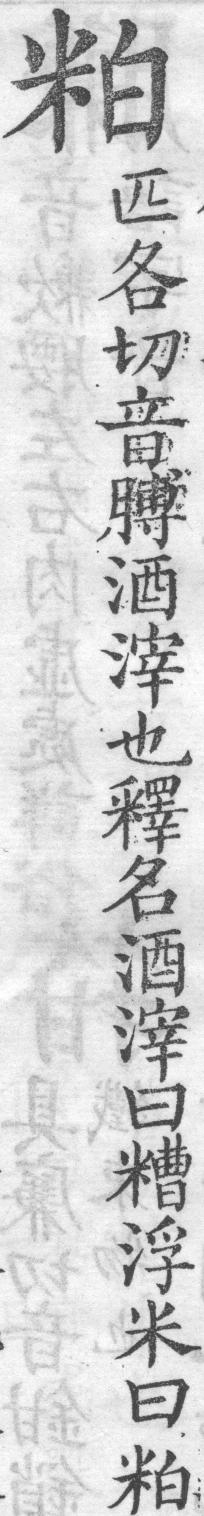 粕
匹各切音膊酒滓也釋名酒滓曰糟浮米曰粕